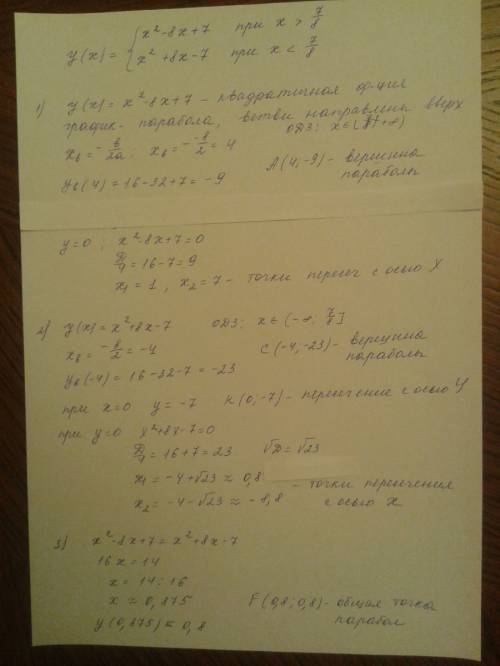 y(x) = { x²-8x+7 при x > 7/8
x²+8x-7 при x < 7/8
1) y(x) = x²-8x+7 - квадратичная ф-ция
график - парабола, ветви направлены вверх
x_в = -в/2a ; x_в = - -8/2 = 4
y_в(4) = 16-32+7 = -9 A(4,-9) - вершина параболы
y=0 ; x²-8x+7=0
D/4 = 16-7=9
x₁ = 1, x₂ = 7 - точки перисеч с осью X
2) y(x) = x²+8x-7 ОДЗ: x∈(-∞; 7/8]
x_в = -8/2 = -4 C(-4,-23) - вершина параболы
y_в(-4) = 16-32-7 = -23
при x=0 y = -7 K(0,-7) - перисечение с осью Y
при y=0 x²+8x-7=0
D/4 = 16+7 = 23 √D = √23
x₁ = -4+√23 ≈ 0,8
x₂ = -4-√23 ≈ -8,8 - точки перисечения с осью X
3) x²-8x+7 = x²+8x-7
16x = 14
x = 14:16
x ≈ 0,875
y(0,875) ≈ 0,8 F(0,8; 0,8) - общая точка парабол